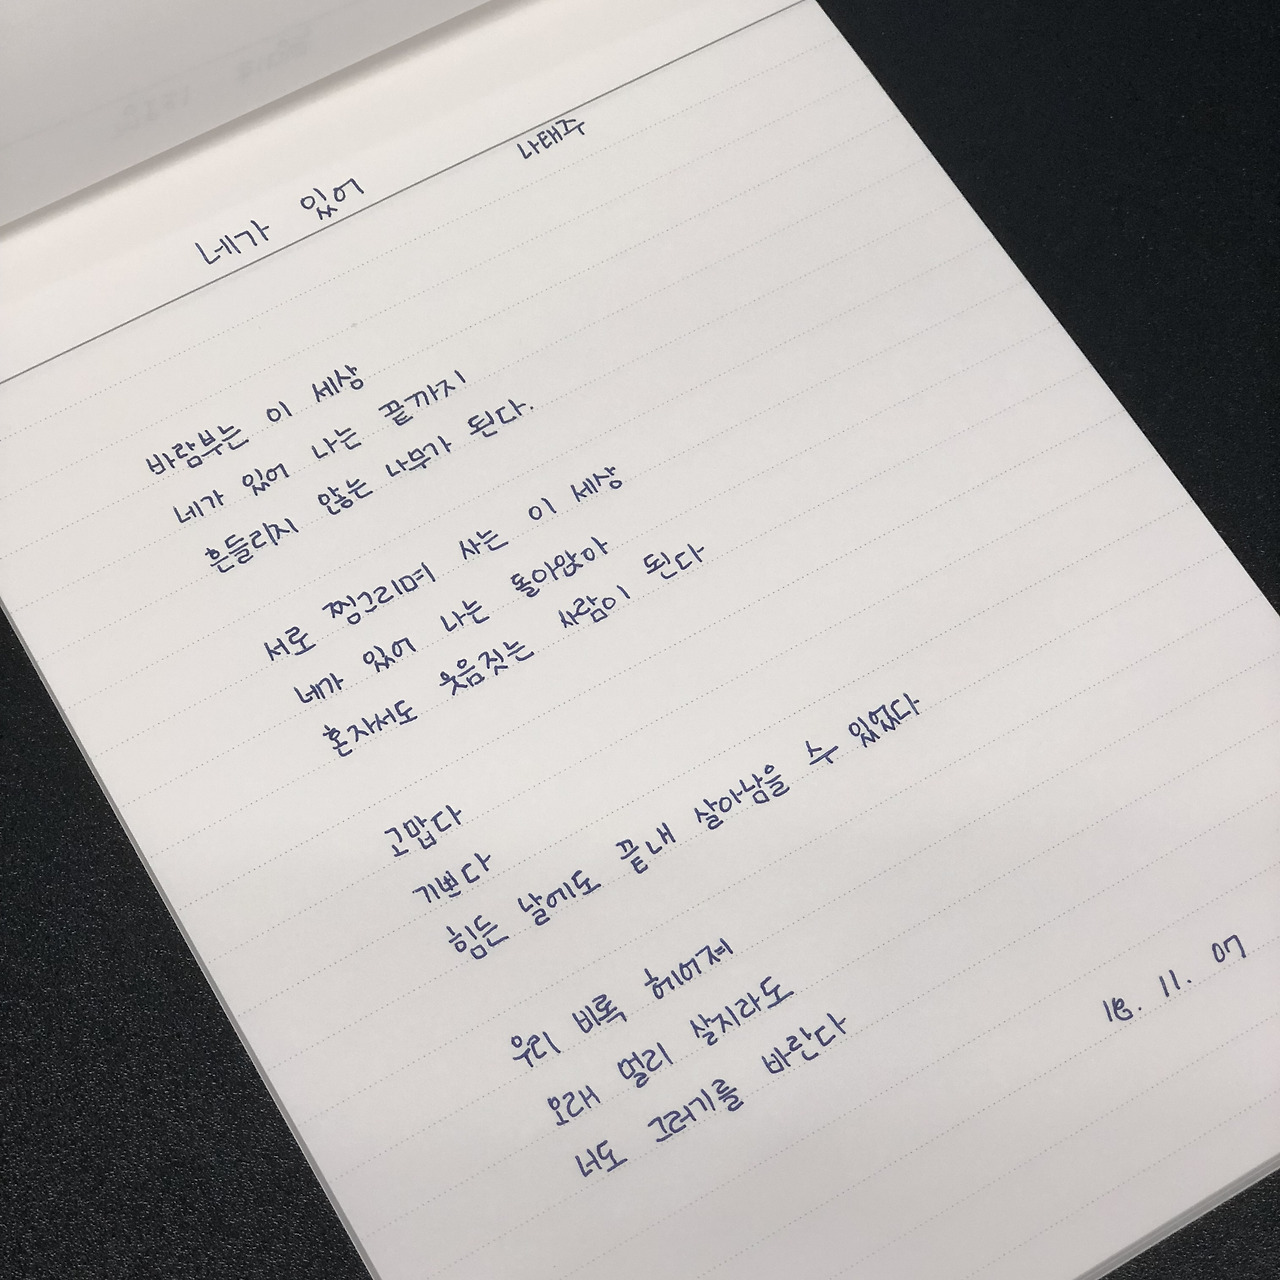 네가 있어
나태주
바람부는 이 세상
네가 있어 나는 끝까지
흔들리지 않는 나무가 된다.
서로 찡그리며 사는 이 세상
네가 있어 나는 돌아앉아
혼자서도 웃음짓는 사람이 된다
고맙다
기쁘다
힘든 날에도 끝내 살아남을 수 있었다
우리 비록 헤어져
오래 멀리 살지라도
너도 그러기를 바란다
18. 11. 07